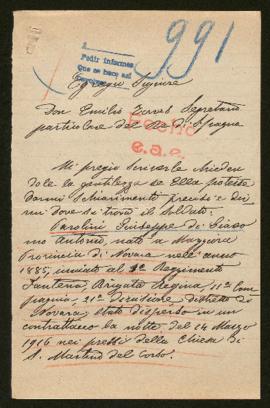 991
Pedir informes
Que se hace así
Egregio Signore
Don Emilio Torres Segretario
particolare del Re di Spagna
Mi pregio scriverle chieden
dole la gentilezza se Ella potesse
darmi schiarimenti precisi e dir
mi dove si trova il Soldato:
Parolini Giuseppe di Giaco
mo Antonio, nato a Maggiora
Provincia di Novara nell' anno
1885, 1° Reggimento
Fanteria, Brigata Regina, 11a Com
pagnia, 21a Divisione, distretto di
Novara, stato disperso in un
contrattacco la notte del 14 Marzo
1916 nei pressi della Chiesa di
S. Martino del Carso.